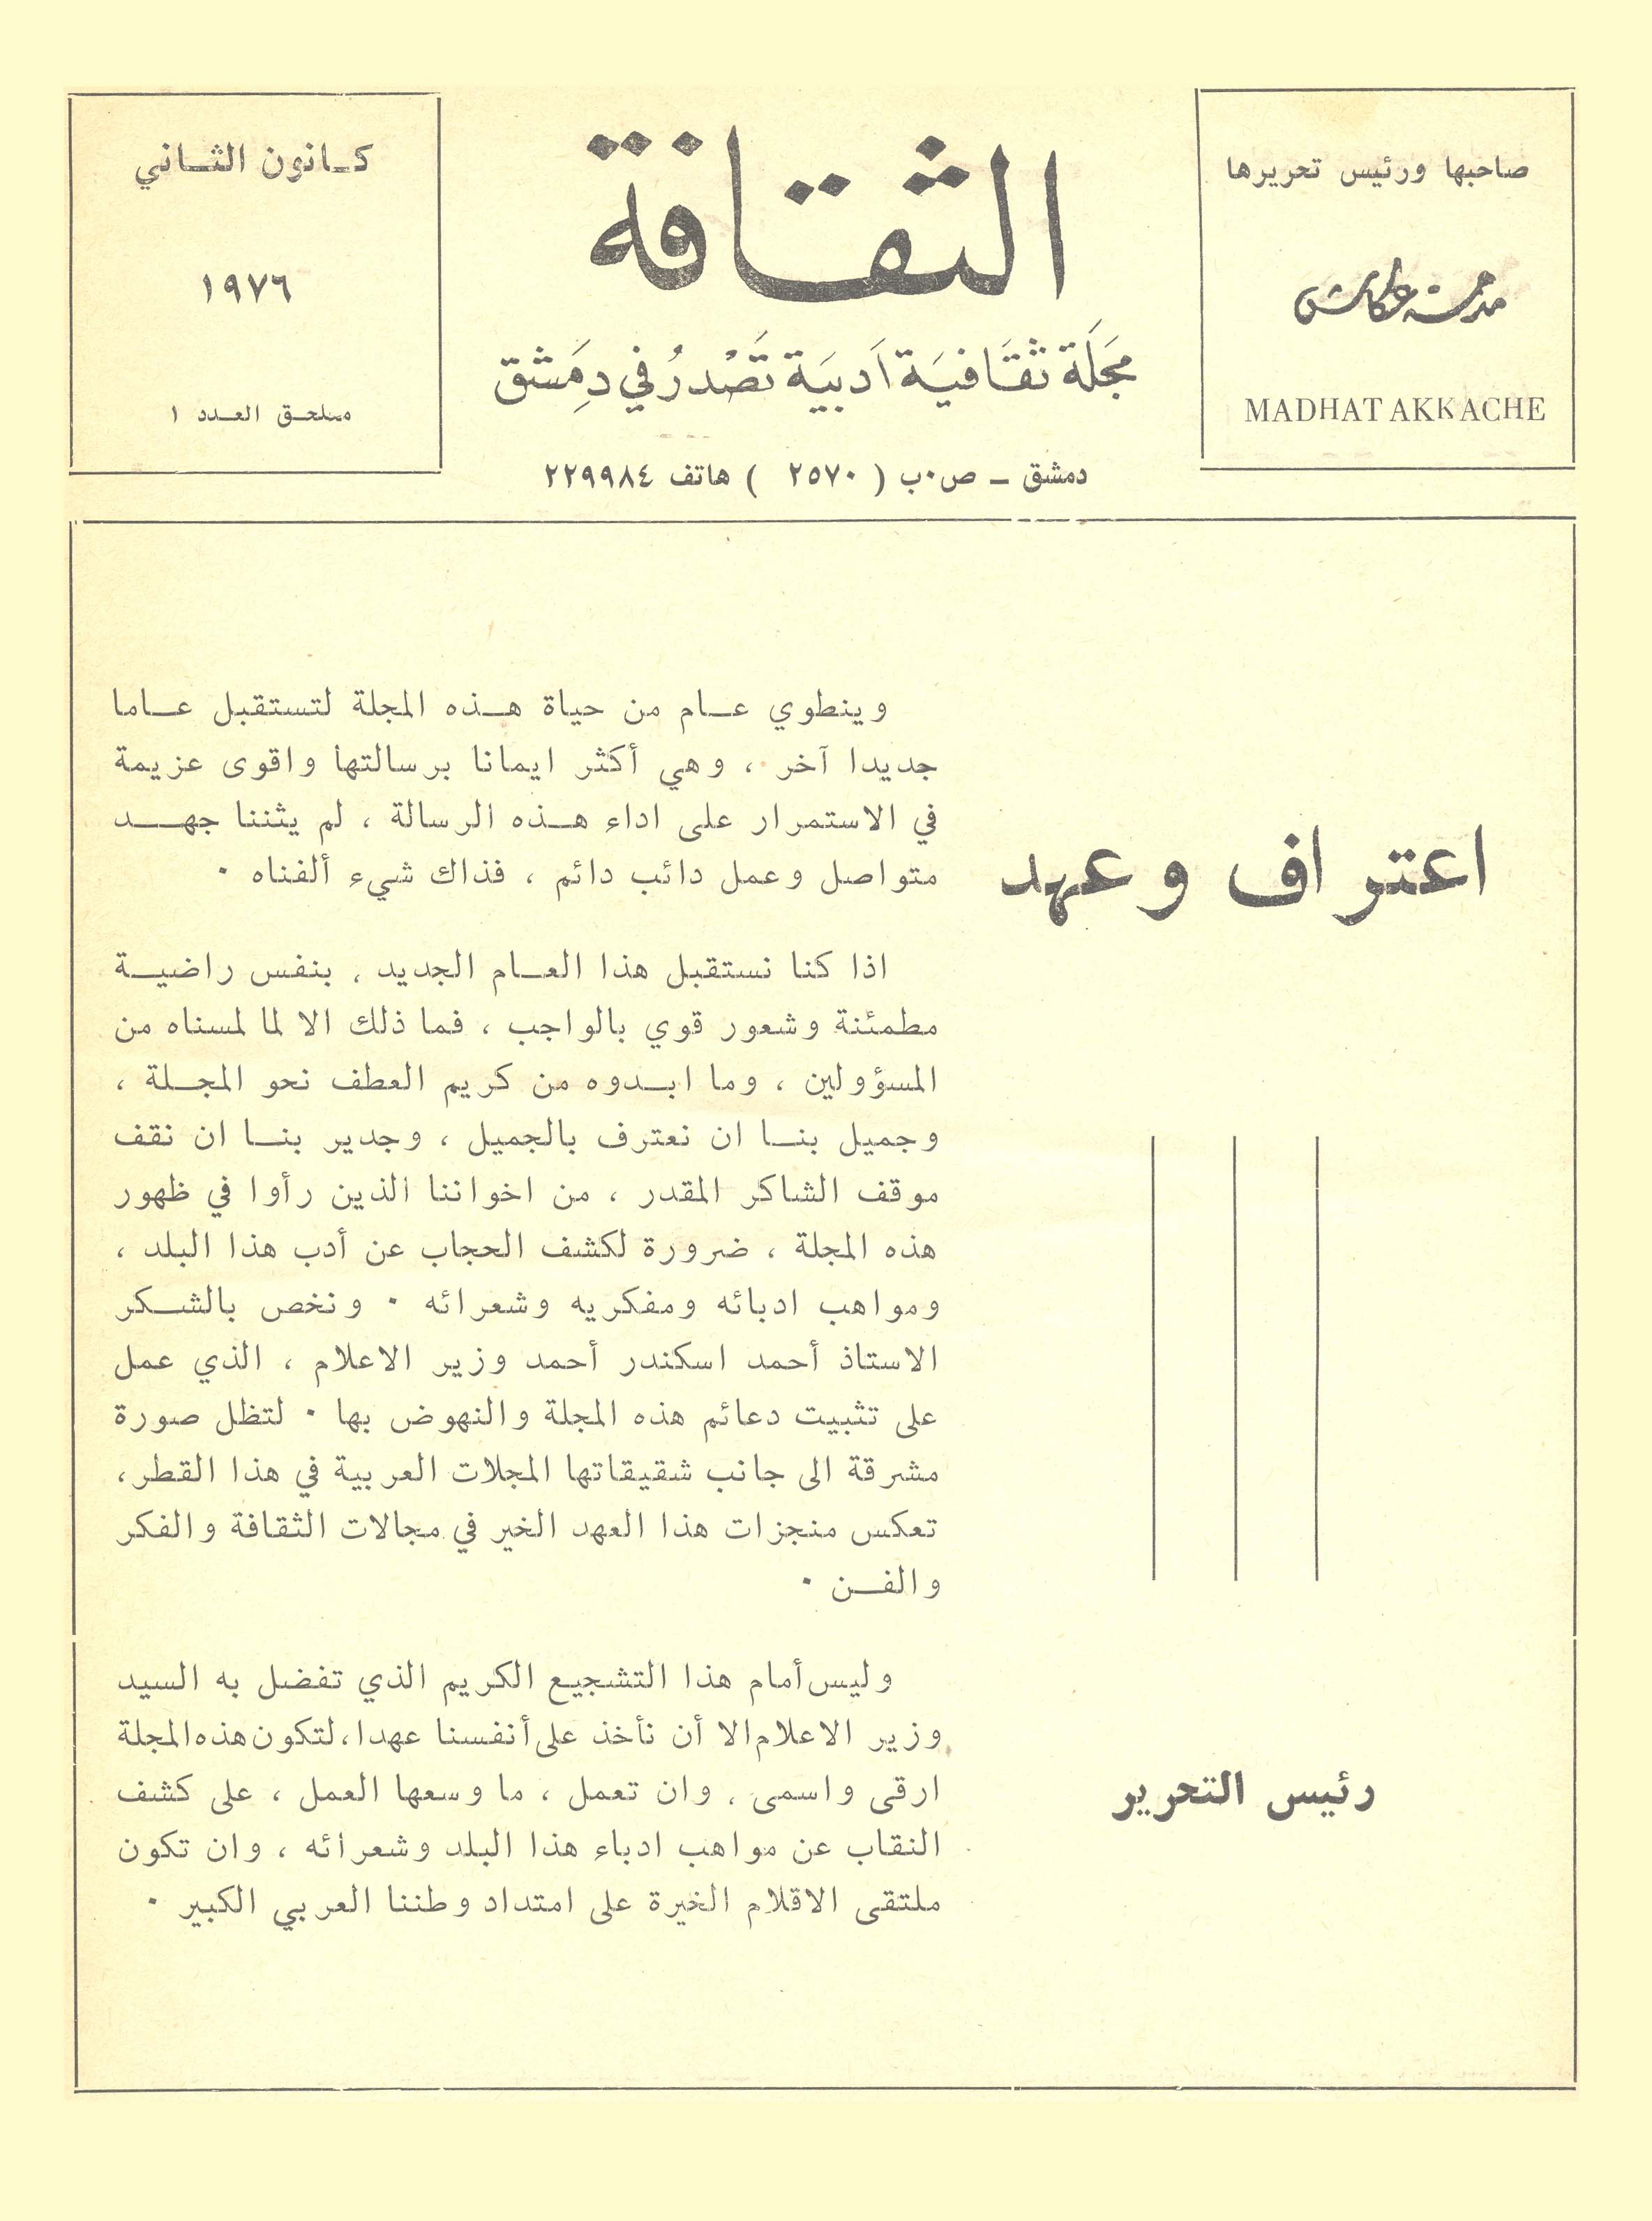 صاحبها ورئيس تحريرها
مدحة عكاش
MADHAT AKKACHE
الثقافة
مجلة ثقافية أدبية تصدر في دمشق
دمشق ـ ص٠ب ( ٢٥٧٠ ) هاتف ٢٢٩٩٨٤
كـانون الثـاني
١٩٧٦
ملحـق العـدد ١
اعتراف وعهد
وينطوي عـام من حياة هـذه المجلة لتستقبل عـاما
جديدا آخر ، وهي أكثر ايمانا برسالتها واقوى عزيمة
في الاستمرار على اداء هـذه الرسالة ، لم يثننا جهـد
متواصل وعمل دائب دائم ، فذاك شيء ألفناه ٠
اذا كنا نستقبل هذا العـام الجديد ، بنفس راضيـة
مطمئنة وشعور قوي بالواجب ، فما ذلك الا لما لمسناه من
المسؤولين ، وما ابـدوه من كريم العطف نحو المجـلة ،
وجميل بنـا ان نعترف بالجميل ، وجدير بنـا ان نقف
موقف الشاكر المقدر ، من اخواننا الذين رأوا في ظهور
هذه المجلة ، ضرورة لكشف الحجاب عن أدب هذا البلد ،
ومواهب ادبائه ومفكريه وشعرائه ٠ ونخص بالشـكر
الاستاذ أحمد اسكندر أحمد وزير الاعلام ، الذي عمل
على تثبيت دعائم هذه المجلة والنهوض بها ٠ لتظل صورة
مشرقة الى جانب شقيقاتها المجلات العربية في هذا القطر،
تعكس منجزات هذا العهد الخير في مجالات الثقافة والفكر
والفـن ٠
وليس أمام هذا التشجيع الكريم الذي تفضل به السيد
وزير الاعلام الا أن نأخذ على أنفسنا عهدا، لتكون هذه المجلة
ارقى واسمى ، وان تعمل ، ما وسعها العمل ، على كشف
النقاب عن مواهب ادباء هذا البلد وشعرائه ، وان تكون
ملتقى الاقلام الخيرة على امتداد وطننا العربي الكبير ٠
رئيس التحرير